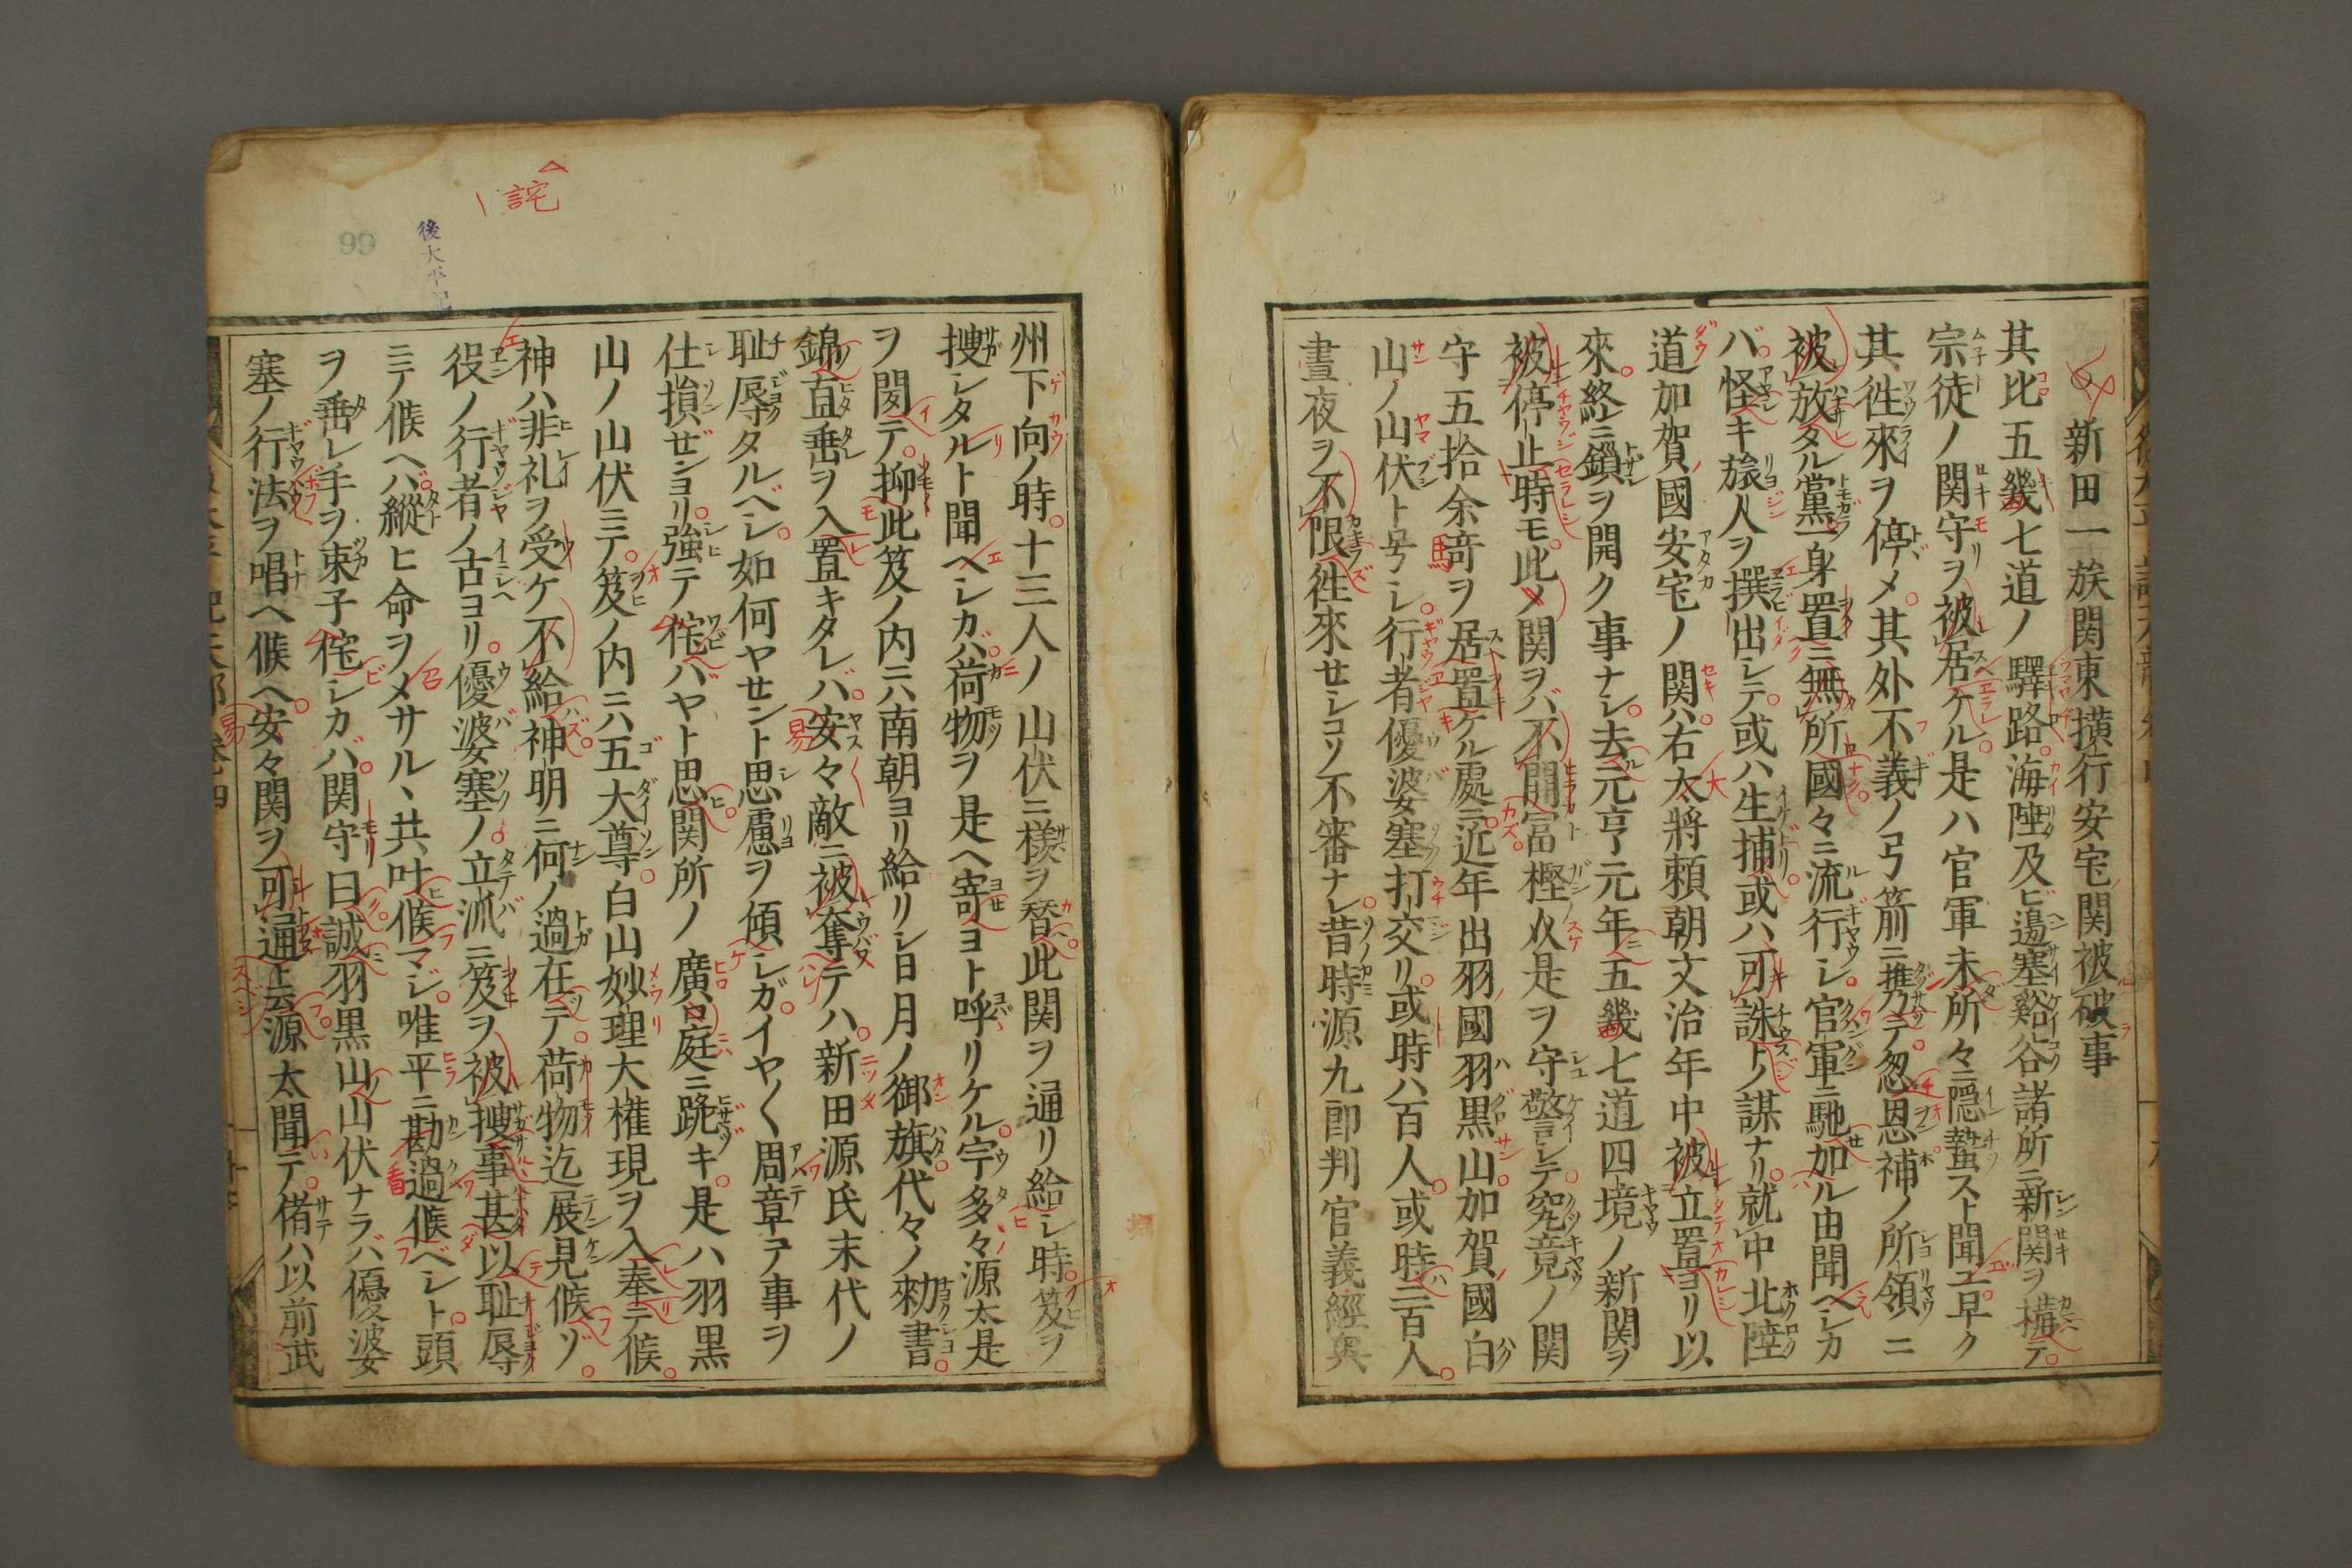 新田一族関東横行安宅関被破事
其比五畿七道ノ驛路海陸及ビ邊塞谿谷諸所ニ新関ヲ構テ
宗徒ノ関守ヲ被居ケル是ハ官軍未所々ニ隠蟄スト聞エ早ク
其徃來ヲ停メ其外不義ノ弓箭ニ携テ怱恩補ノ所領ニ
被放タル黨一身置ニ無所國々ニ流行シ官軍ニ馳加ル由聞ヘシカ
バ怪キ旅人ヲ撰出シテ或ハ生捕或ハ可誅トノ謀ナリ就中北陸
道加賀國安宅ノ関ハ右太將頼朝文治年中被立置ヨリ以
來終ニ鎖ヲ開ク事ナシ去元亨元年五畿七道四境ノ新関ヲ
被停止時モ此ノ関ヲバ不開富樫
守五拾余竒ヲ居置ケル處ニ近年出羽國羽黒山加賀國白
山ノ山伏ト号シ行者優婆塞打交リ或時ハ百人或時二百人
晝夜ヲ不限徃來セシコソ不審ナレ昔時源九郎判官義經奥
詫
後太平記
99
州下向ノ時十三人ノ山伏ニ様ヲ替此関ヲ通リ給シ時笈ヲ
捜シタルト聞ヘシカバ荷物ヲ是ヘ寄ヨト呼リケル宇多々源太是
ヲ聞テ抑此笈ノ内ニハ南朝ヨリ給リシ日月ノ御旗代々ノ勅書
錦直垂ヲ入置キタレバ安々敵ニ被奪テハ新田源氏末代ノ
耻辱タルベシ如何ヤセント思慮ヲ傾シガイヤ〱周章テ事ヲ
仕損ゼンヨリ強テ侘バヤト思関所ノ廣庭ニ跪キ是ハ羽黒
山ノ山伏ニテ笈ノ内ニハ五大尊白山妙理大権現ヲ入奉テ候
神ハ非礼ヲ受ケ不給神明ニ何ノ過在テ荷物迄展見候ゾ
役ノ行者ノ古ヨリ優婆塞ノ立派ニ笈ヲ被捜事甚以耻辱
ニテ候ヘバ縱ヒ命ヲメサルヽ共叶候マジ唯平ニ勘過候ベシト頭
ヲ垂レ手ヲ束子侘シカバ関守曰誠羽黒山山伏ナラバ優婆
塞ノ行法ヲ唱ヘ候ヘ安々関ヲ可通ト云源太聞テ偖ハ以前武